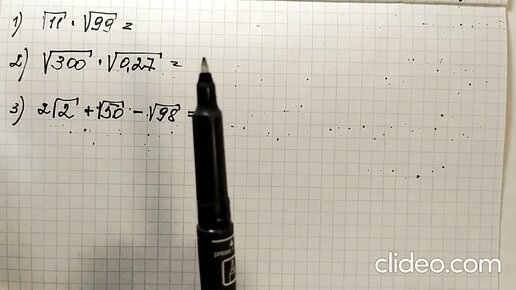 1) √11 · √99 =
2) √300 · √0,27 =
3) 2√2 + √50 - √98 =
clideo.com